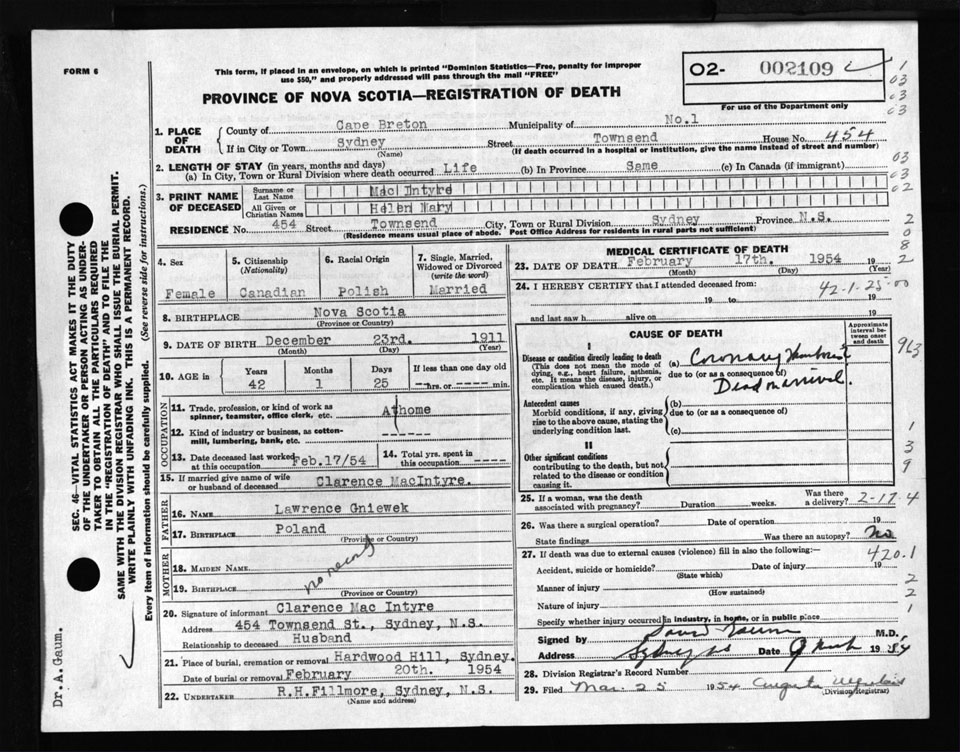 FORM 6
This form, if placed in an envelope, on which is printed "Dominion Statistics—Free, penalty for improper
use $50," and properly addressed will pass through the mail "FREE"
O2- 002109
For use of the Department only
PROVINCE OF NOVA SCOTIA—REGISTRATION OF DEATH
1. PLACE OF DEATH County of Cape Breton Municipality of No.1
If in City or Town Sydney Street Townsend House No. 454
(Name) (If death occurred in a hospital or institution, give the name instead of street and number)
2. LENGTH OF STAY (in years, months and days)
(a) In City, Town or Rural Division where death occurred Life (b) In Province Same (c) In Canada (if immigrant)
3. PRINT NAME OF DECEASED Surname or Last Name Mac Intyre
All Given or Christian Names Helen Mary
RESIDENCE No. 454 Street Townsend City, Town or Rural Division Sydney Province N.S.
(Residence means usual place of abode. Post Office Address for residents in rural parts not sufficient)
4. Sex Female
5. Citizenship (Nationality) Canadian
6. Racial Origin Polish
7. Single, Married, Widowed or Divorced (write the word) Married
8. BIRTHPLACE Nova Scotia
(Province or Country)
9. DATE OF BIRTH December 23rd. 1911
(Month) (Day) (Year)
10. AGE in Years Months Days If less than one day old
42 1 25 hrs. or min.
OCCUPATION
11. Trade, profession, or kind of work as spinner, teamster, office clerk, etc. Athome
12. Kind of industry or business, as cotton-mill, lumbering, bank, etc. -----
13. Date deceased last worked at this occupation Feb.17/54
14. Total yrs. spent in this occupation ----
15. If married give name of wife or husband of deceased Clarence MacIntyre.
FATHER
16. NAME Lawrence Gniewek
17. BIRTHPLACE Poland
(Province or Country)
MOTHER
18. MAIDEN NAME
19. BIRTHPLACE no record
(Province or Country)
20. Signature of informant Clarence Mac Intyre
Address 454 Townsend St., Sydney, N.S.
Relationship to deceased Husband
21. Place of burial, cremation or removal Hardwood Hill, Sydney.
Date of burial or removal February 20th. 1954
22. UNDERTAKER R.H.Fillmore, Sydney, N.S.
(Name and address)
MEDICAL CERTIFICATE OF DEATH
23. DATE OF DEATH February 17th. 1954 19
(Month) (Day) (Year)
24. I HEREBY CERTIFY that I attended deceased from: 42-1-25-00
19 to 19
and last saw h alive on 19
CAUSE OF DEATH
Approximate interval between onset and death
I
Disease or condition directly leading to death (a) Coronary
(This does not mean the mode of dying, e.g., heart failure, asthenia, etc. It means the disease, injury, or complication which caused death.)
due to (or as a consequence of) Dead on arrival.
Antecedent causes (b)
Morbid conditions, if any, giving rise to the above cause, stating the underlying condition last.
due to (or as a consequence of)
(c)
II
Other significant conditions
contributing to the death, but not related to the disease or condition causing it.
25. If a woman, was the death associated with pregnancy? Duration weeks. Was there a delivery? 2-17-4
26. Was there a surgical operation? Date of operation 19
State findings Was there an autopsy? No
27. If death was due to external causes (violence) fill in also the following:— 420.1
Accident, suicide or homicide? Date of injury 19
(State which)
Manner of injury
(How sustained)
Nature of injury
Specify whether injury occurred in industry, in home, or in public place
Signed by M.D.
Address Sydney NS Date 9 March 1954
28. Division Registrar's Record Number
29. Filed Mar. 25 1954 Augusta
(Division Registrar)
SEC. 46—VITAL STATISTICS ACT MAKES IT THE DUTY
OF THE UNDERTAKER OR PERSON ACTING AS UNDER-
TAKER TO OBTAIN ALL THE PARTICULARS REQUIRED
IN THE "REGISTRATION OF DEATH" AND TO FILE THE
SAME WITH THE DIVISION REGISTRAR WHO SHALL ISSUE THE BURIAL PERMIT.
WRITE PLAINLY WITH UNFADING INK. THIS IS A PERMANENT RECORD.
Every item of information should be carefully supplied. (See reverse side for instructions.)
Dr. A. Gaum.
1
03
03
03
03
03
02
2
0
8
2
963
1
3
9
2
2
1